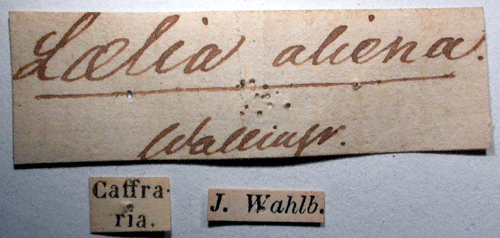 Lælia aliena.
Wallengr.
Caffra-
ria.
J. Wahlb.